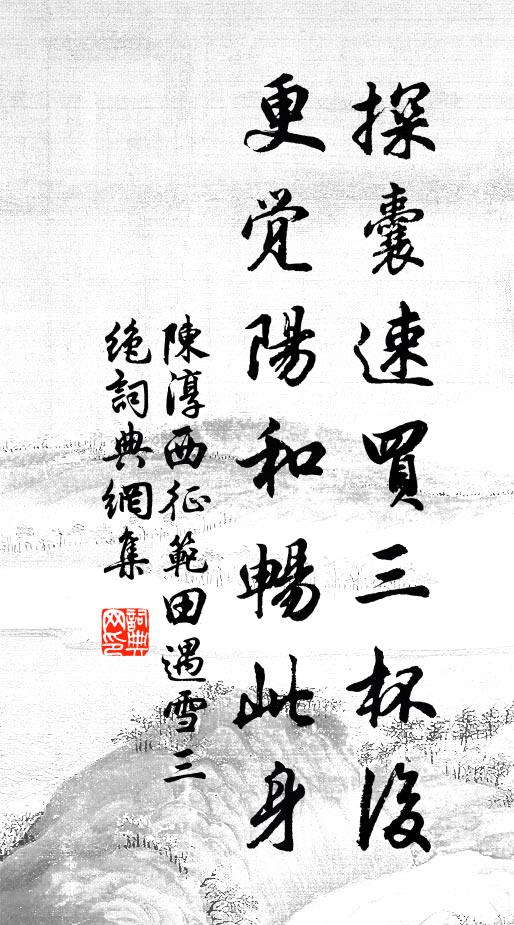 探囊速買三杯後
更觉陽和暢此身
陳淳西征範田遇雪三
絶詞典網集
詞典
网印